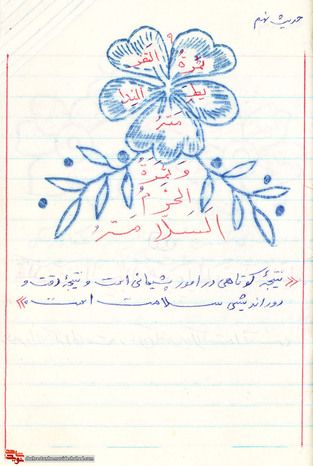 حدیث نهم
ثمرة التفر
یط الندا
مة
و ثمرة
الحزم
السلامة
«نتیجهٔ کوتاهی در امور پشیمانی است و نتیجهٔ دقت و
دوراندیشی سلامت است.»